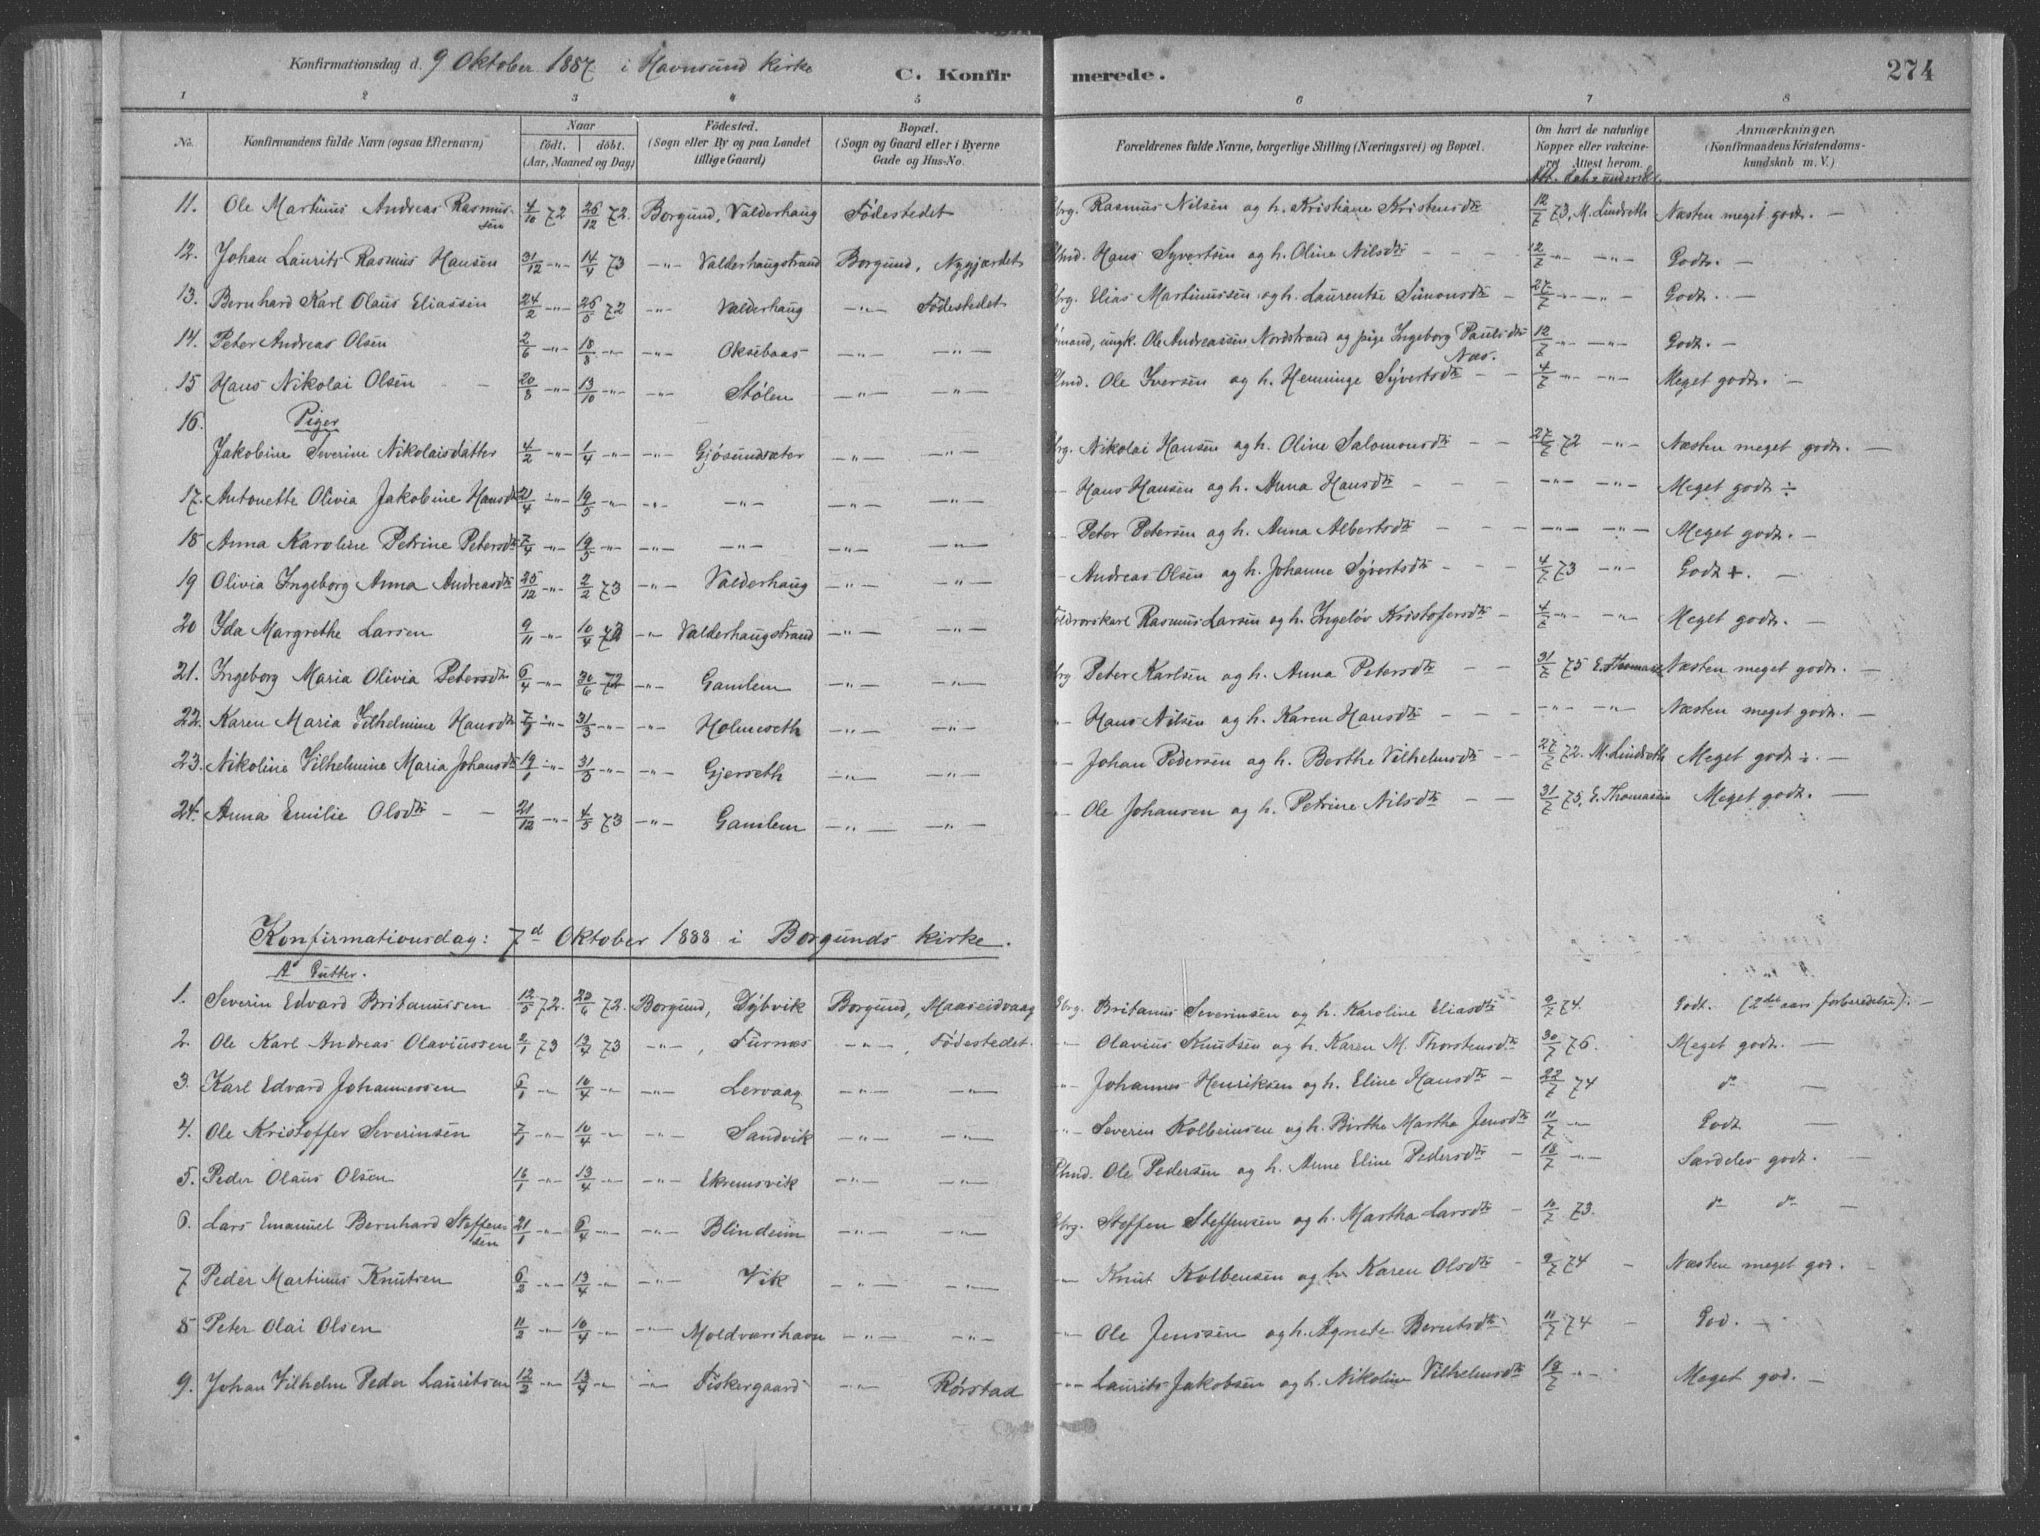 Konfirmationsdag d. 9 Oktober 1887 i Havnsund Kirke C. Konfirmerede. 274
1 2 3 4 5 6 7 8
No. Konfirmandens fulde Navn (ogsaa Efternavn) Naar födt. döbt. (Aar, Maaned og Dag) Födested. (Sogn eller By og paa Landet tillige Gaard) Bopæl. (Sogn og Gaard eller i Byerne Gade og Hus-No. Forældrenes fulde Navne, borgerlige Stilling (Næringsvei) og Bopæl. Om havt de naturlige Kopper eller vaccineret, Attest herom. Anmærkninger. (Konfirmandens Kristendomskundskab m. V.)
11. Ole Martinus Andreas Rasmussen 4/10 72 26/12 72. Borgund, Valderhaug Fødestedet Rasmus Nilsen og h. Kristiane Kristensdtr 12/7 73, M. Lindseth Næsten meget godt. —
12. Johan Laurits Rasmus Hansen 31/12 -"- 14/4 73 -"- Valderhaugstrand Borgund, Nygjærdet Hans Syvertsen og h. Oline Nilsdtr 12/7 -"- -"- Godt. —
13. Bernhard Karl Olaus Eliassen 24/2 -"- 26/5 72 -"- Valderhaug -"- Fødestedet Elias Martinussen og h. Laurentse Simonsdtr 27/7 -"- -"- Godt. —
14. Peter Andreas Olsen 2/6 -"- 18/8 -"- -"- Oksebaas -"- -"- ungk. Ole Andreassen Nordstrand og pige Ingeborg Paulsdtr Næs. 12/7 -"- -"- Godt. —
15 Hans Nikolai Olsen 20/8 -"- 13/10 -"- -"- Stølen -"- -"- Ole Iversen og h. Henninge Syvertsdtr 4/7 -"- -"- Meget godt. —
16. Piger
Jakobine Severine Nikolaisdatter 4/2 -"- 1/4 -"- -"- Gjøsundsæter -"- -"- Nikolai Hansen og h. Oline Salomonsdtr 27/7 72 -"- Næsten meget godt. —
17. Antonette Olivia Jakobine Hansdtr 21/4 -"- 19/5 -"- -"- -"- -"- -"- Hans Hansen og h. Anna Hansdtr -"- -"- Meget godt ÷
18 Anna Karoline Petrine Petersdtr 7/4 -"- 19/5 -"- -"- -"- -"- -"- Peter Petersen og h. Anna Albertsdtr -"- -"- Meget godt. —
19 Olivia Ingeborg Anna Andreasdtr 25/12 -"- 2/2 73 -"- Valderhaug -"- -"- Andreas Olsen og h. Johanne Syvertsdtr 4/7 73 -"- Godt +. —
20 Ida Margrethe Larsen 9/11 -"- 10/4 -"- Valderhaugstrand -"- -"- Rasmus Larsen og h. Ingeløv Kristofersdtr 4/7 -"- -"- Meget godt. —
21. Ingeborg Maria Olivia Petersdtr 6/4 -"- 30/6 72 -"- Gamlem -"- -"- Peter Karlsen og h. Anna Petersdtr 31/7 75 E. Thomasen Næsten meget godt. —
22. Karen Maria Vilhelmine Hansdtr 7/1 -"- 31/3 -"- -"- Holmeseth -"- -"- Hans Nilsen og h. Karen Hansdtr -"- -"- Næsten meget godt. —
23. Nikoline Vilhelmine Maria Johansdtr 19/1 -"- 31/3 -"- -"- Gjerseth -"- -"- Johan Pedersen og h. Berthe Vilhelmsdtr 27/7 72. M. Lindseth Meget godt ÷. —
24. Anna Emilie Olsdtr 21/12 -"- 4/5 73 -"- Gamlem -"- -"- Ole Johansen og h. Petrine Nilsdtr 31/7 75, E. Thomassen Meget godt. —
Konfirmationsdag: 7d Oktober 1888 i Borgunds kirke.
A Gutter.
1. Severin Edvard Britanussen 12/5 72. 23/6 72. Borgund, Dybvik Borgund, Maaseidvaag Britanus Severinsen og h. Karoline Eliasdtr 9/7 74. Godt. (2det aars forberedelse). —
2. Ole Karl Andreas Olaviussen 2/1 73 13/4 73 -"-, Furnæs -"-, Fødestedet. Olavius Knutsen og h. Karen M. Thorstensdtr 30/7 76. Meget godt. —
3. Karl Edvard Johannessen 6/1 -"- 10/4 -"- -"- Lervaag -"- -"- Johannes Henriksen og h. Eline Hansdtr 22/7 74 do —
4. Ole Kristoffer Severinsen 7/1 -"- 10/4 -"- -"- Sandvik -"- -"- Severin Kolbeinsen og h. Birthe Martha Jensdtr 11/7 -"- Godt —
5. Peder Olaus Olsen 16/1 -"- 13/4 -"- -"- Ekremsvik -"- -"- Ole Pedersen og h. Anne Eline Pedersdtr 18/7 -"- Særdeles godt. —
6. Lars Emanuel Bernhard Steffensen 21/1 -"- 6/4 -"- -"- Blindeim -"- -"- Steffen Steffensen og h. Martha Larsdtr 10/7 73. do do —
7 Peder Martinus Knutsen 6/2 -"- 13/4 -"- -"- Vik -"- -"- Knut Kolbensen og h. Karen Olsdtr 9/7 74 Næsten meget god. —
8 Peter Olai Olsen 11/2 -"- 10/4 -"- -"- Moldværshavn -"- -"- Ole Jenssen og h. Agnete Berntsdtr 11/7 74 God. —
9. Johan Vilhelm Peder Lauritsen 12/2 -"- 13/4 -"- -"- Fiskergaard -"- Rørstad Laurits Jakobsen og h. Nikoline Vilhelmsdtr 18/7 -"- Meget god. —